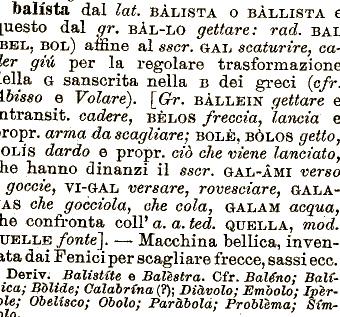 balísta dal lat. BÀLISTA o BÀLLISTA e
questo dal gr. BÀL-LO gettare: rad. BAL
BEL, BOL) affine al sscr. GAL scaturire, ca-
der giú per la regolare trasformazione
della G sanscrita nella B dei greci (cfr.
Abisso e Volare). [Gr. BÀLLEIN gettare e
intransit. cadere, BÈLOS freccia, lancia e
propr. arma da scagliare; BOLÈ, BÒLOS getto,
BOLÍS dardo e propr. ciò che viene lanciato,
che hanno dinanzi il sscr. GAL-ÂMI verso
goccie, VI-GAL versare, rovesciare, GALA-
NAS che gocciola, che cola, GALAM acqua,
che confronta coll' a. a. ted. QUELLA, mod.
QUELLE fonte]. — Macchina bellica, inven-
tata dai Fenici per scagliare frecce, sassi ecc.
Deriv. Balistíte e Balèstra. Cfr. Baléno; Balí-
tica; Bòlide; Calabrína (?); Diàvolo; Embolo; Ipèr-
bole; Obelísco; Obolo; Paràbola; Problèma; Sím-